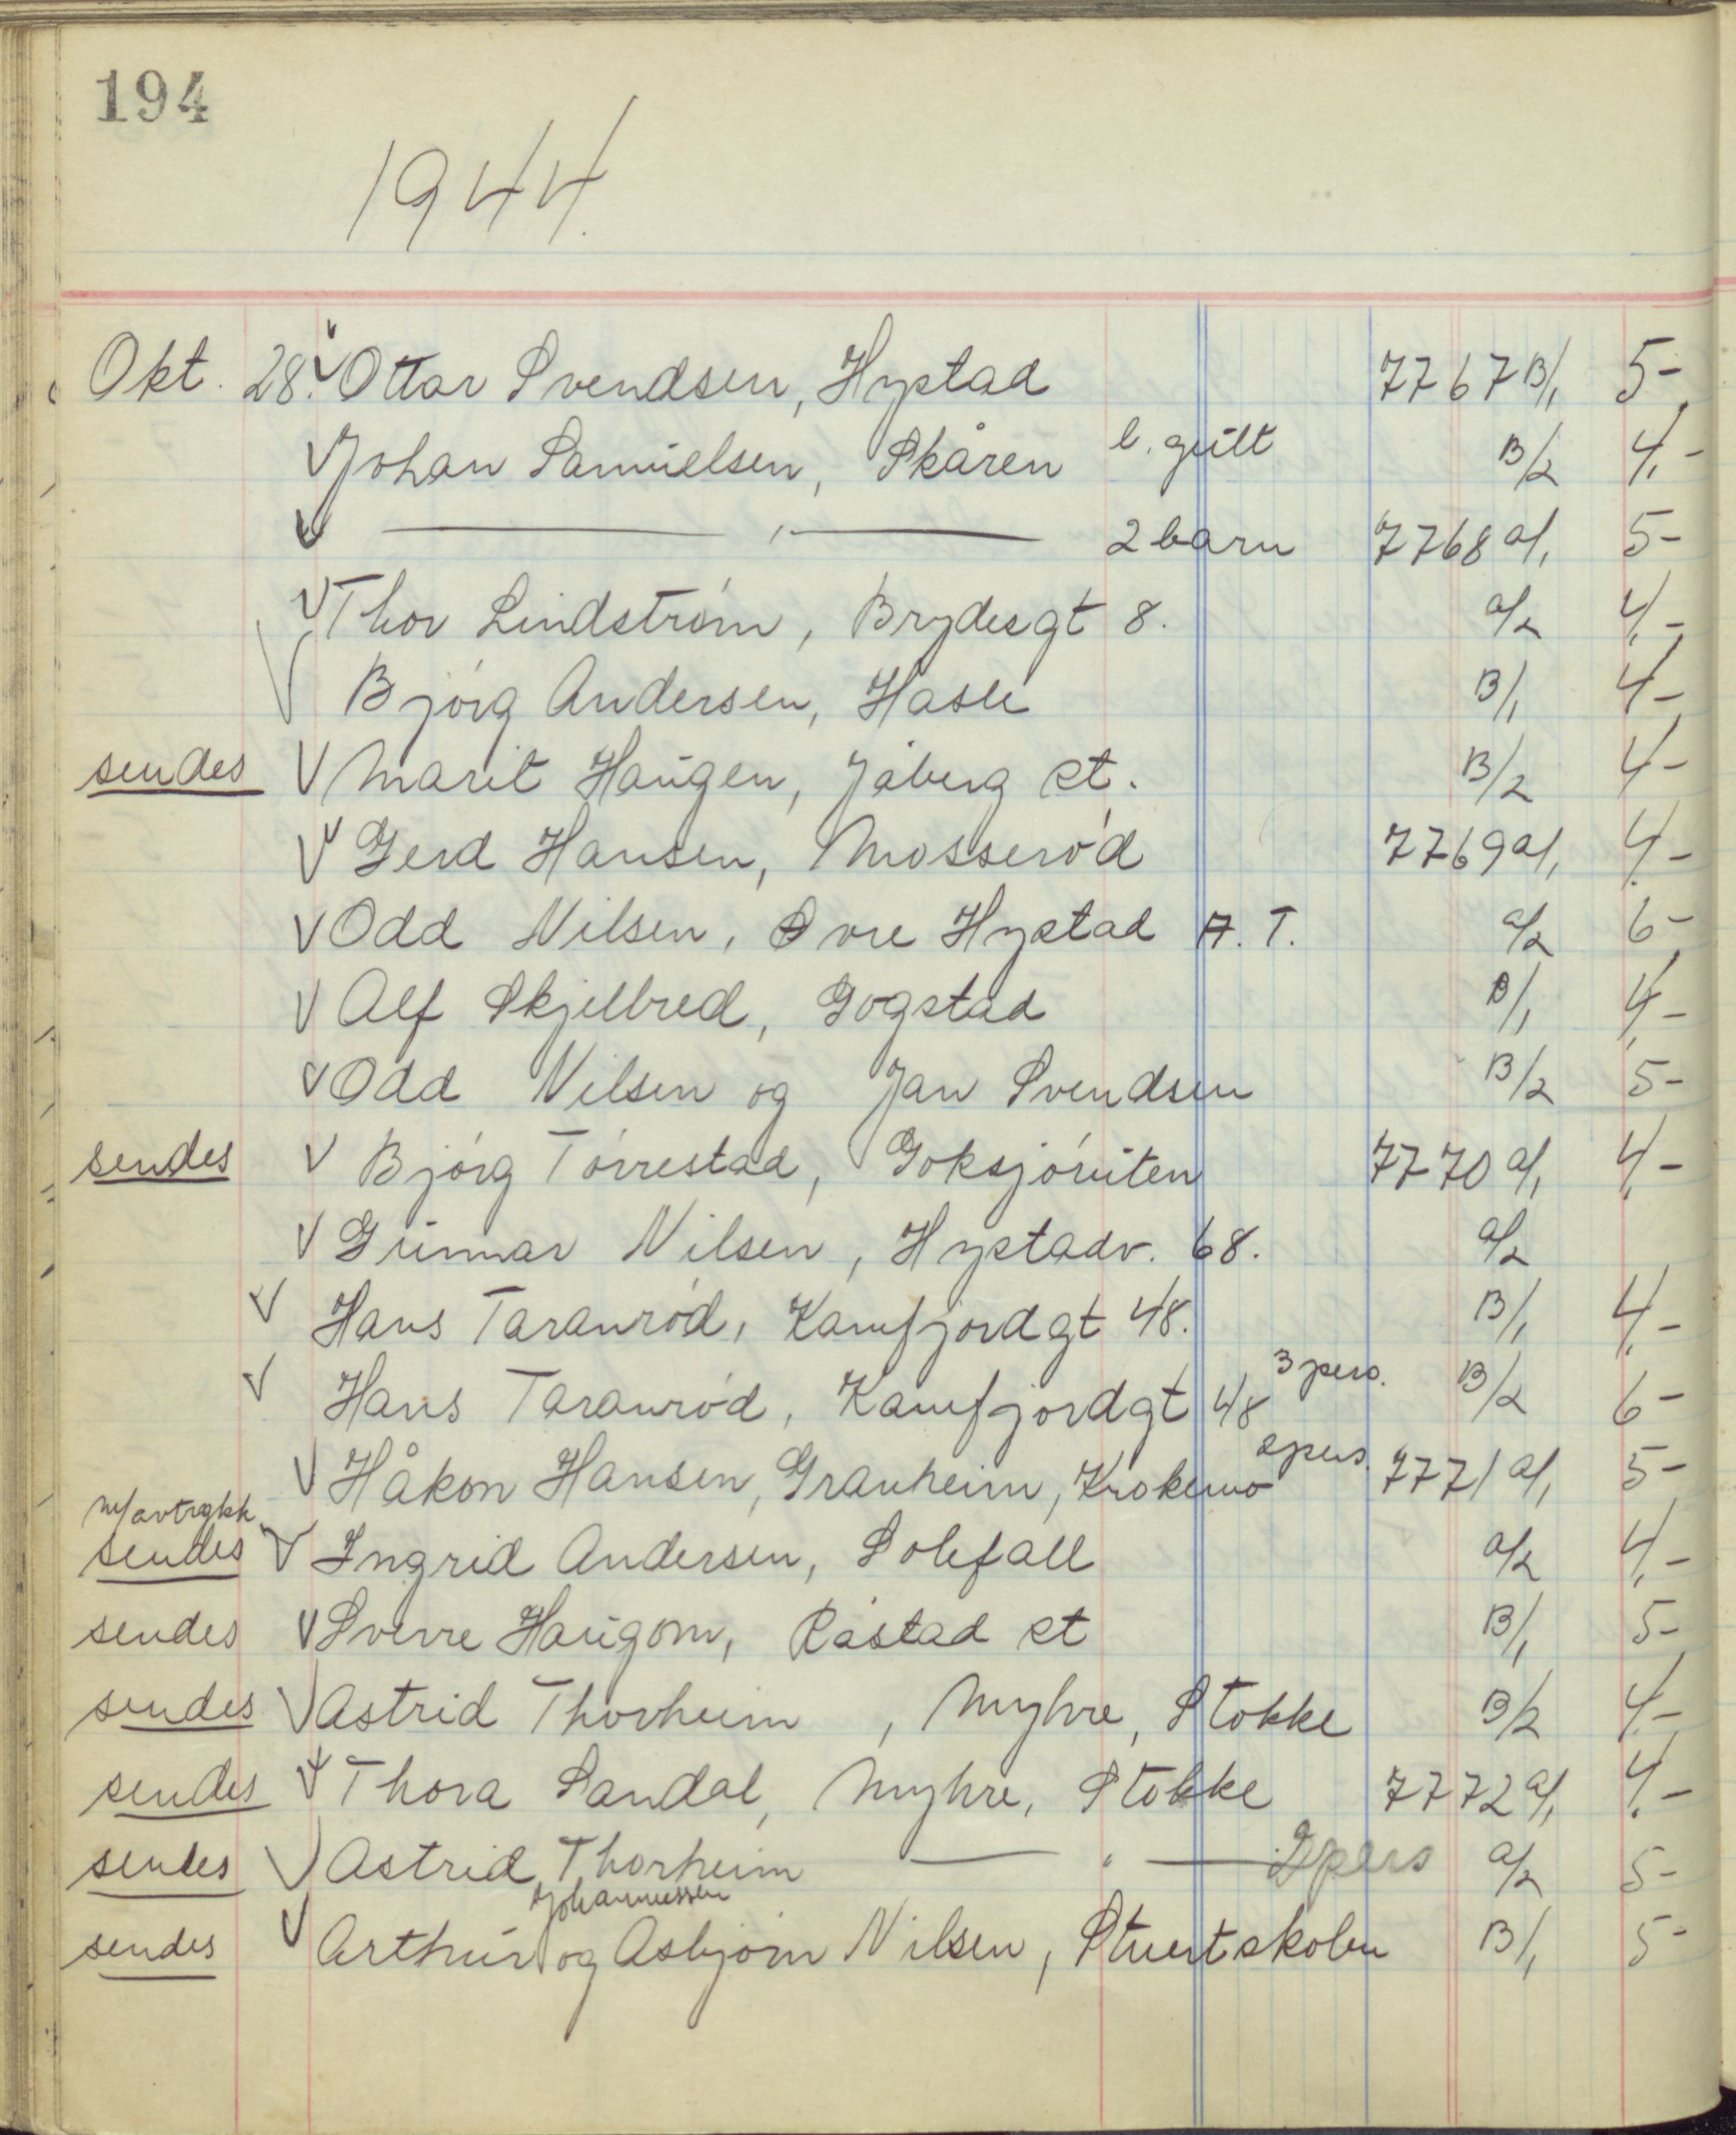 194
1944.
Okt. 28. Ottar Svendsen, Hystad 7767 B/1 5-
Johan Samuelsen, Skåren l. gutt B/2 4,-
— , — 2 barn 7768 a/1 5-
Thor Lindstrøm, Brydesgt 8. a/2 4,-
Bjørg Andersen, Hasle B/1 4-
sendes Marit Haugen, Jåberg st. B/2 4-
Gerd Hansen, Mosserød 7769 a/1 4-
Odd Nilsen, Øvre Hystad A. T. a/2 6-
Alf Skjelbred, Gogstad B/1 4,-
Odd Nilsen og Jan Svendsen B/2 5-
sendes Bjørg Tørrestad, Goksjøruten 7770 a/1 4,-
Gunnar Nilsen, Hystadv. 68. a/2
Hans Taranrød, Kamfjordgt 48. B/1 4,-
Hans Taranrød, Kamfjordgt 48 3 pers. B/2 6-
Håkon Hansen, Granheim, Krokemo 2 pers. 7771 a/1 5-
m/avtrykk
sendes Ingrid Andersen, Solefall a/2 4,-
sendes Sverre Haugom, Råstad st B/1 5-
sendes Astrid Thorheim , Myhre, Stokke B/2 4-
sendes Thora Sandal, Myhre, Stokke 7772 a/1 4,-
sendes Astrid Thorheim — " — 2 pers a/2 5-
Johannessen
sendes Arthur og Asbjørn Nilsen, Stuertskolen B/1 5-